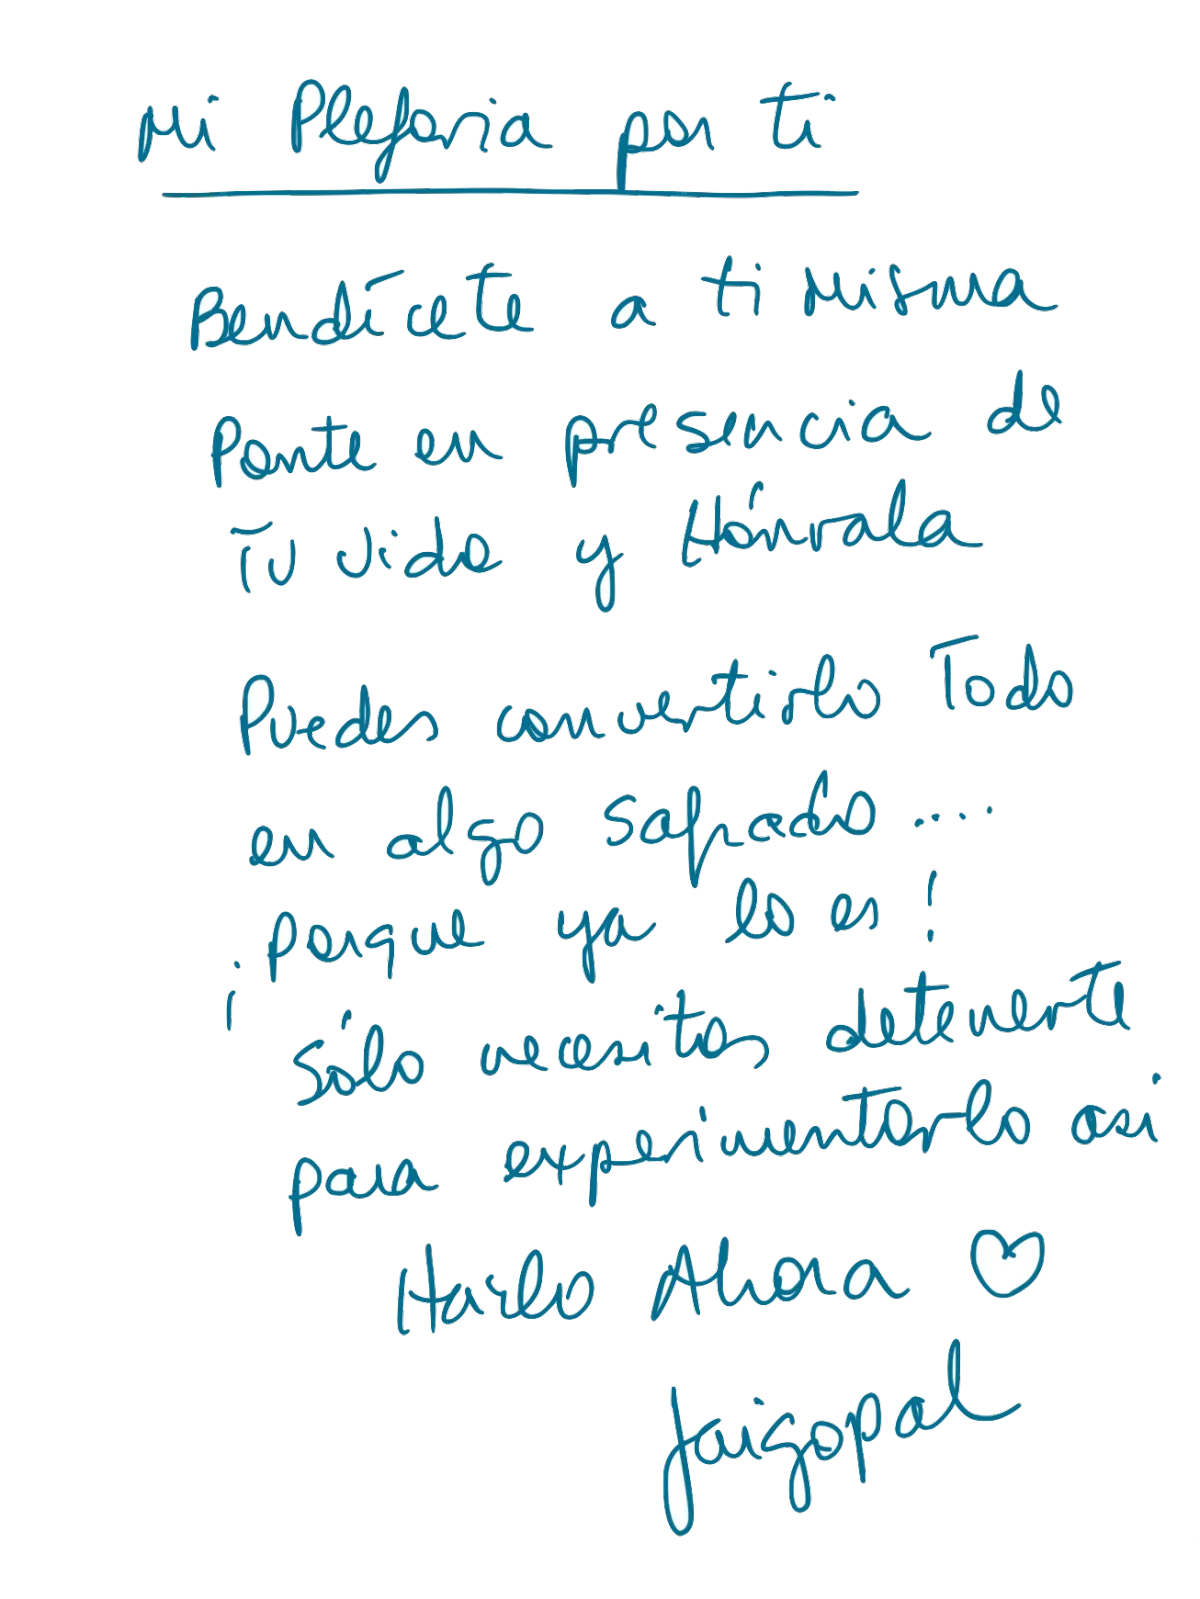 Mi Plegaria por ti
Bendícete a ti misma
Ponte en presencia de
Tu vida y Hónrala
Puedes convertirlo Todo
en algo sagrado....
¡Porque ya lo es!
sólo necesitas detenerte
para experimentarlo asi
Hazlo Ahora ♡
Jaigopal